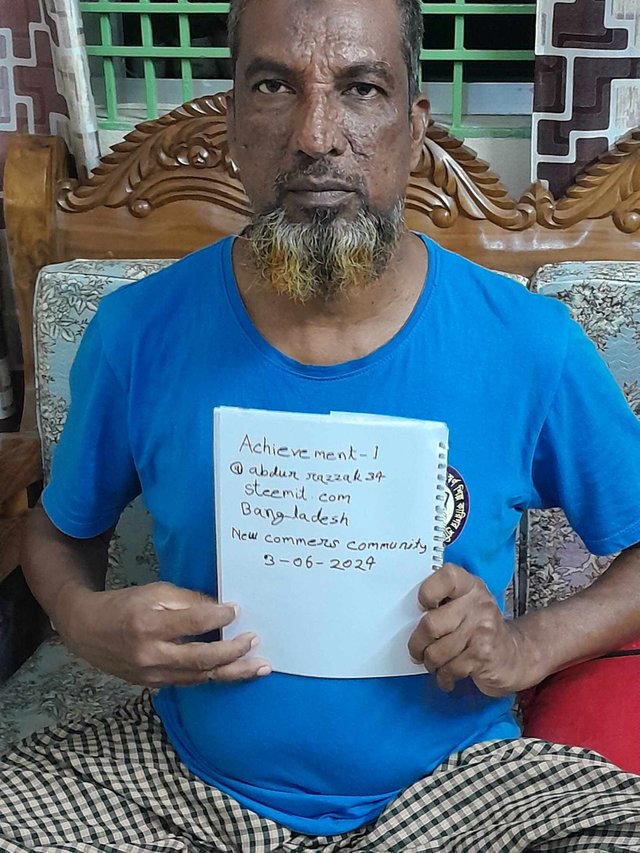 Achievement-1
@abdur razzak34
steemit.com
Bangladesh
New commers community
3-06-2024